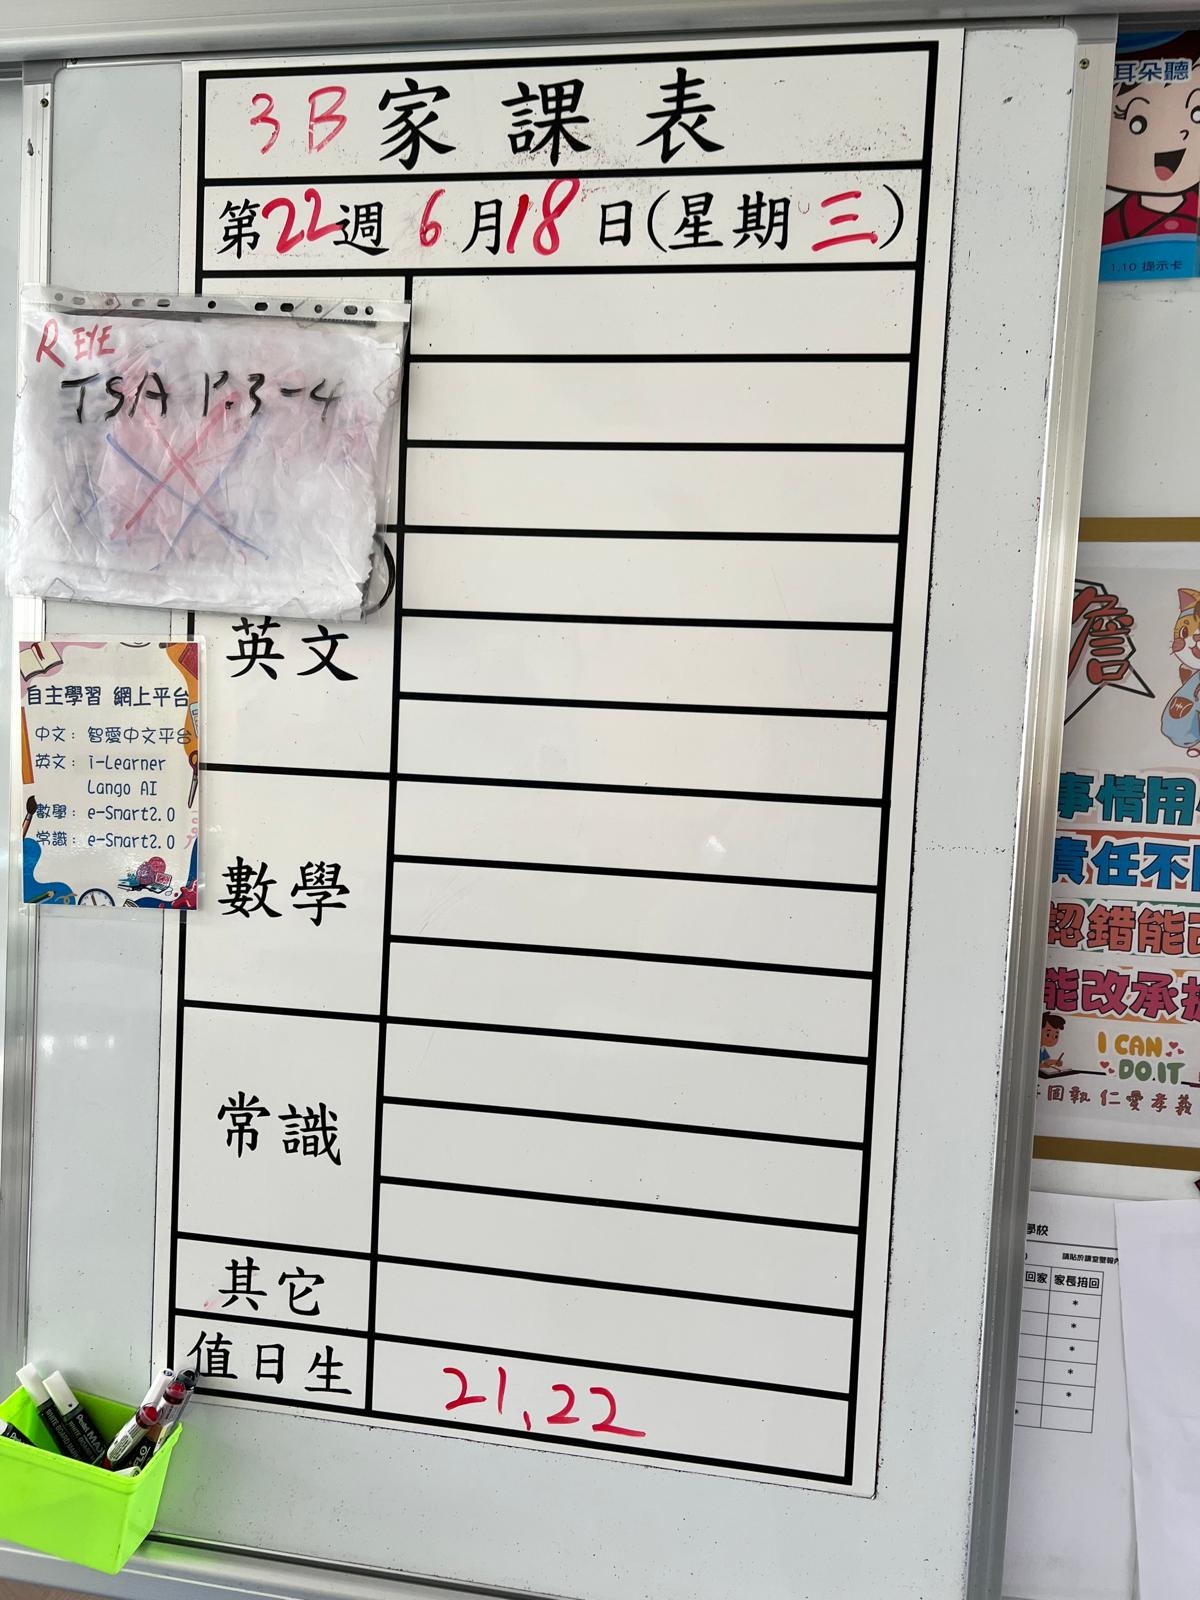 3B家課表
第22週 6月18日(星期三)
R EYE
TSA P.3-4
英文
數學
常識
其它
值日生
21,22
自主學習 網上平台
中文：智愛中文平台
英文：i-Learner
Lango AI
數學：e-Smart2.0
常識：e-Smart2.0
耳朵聽
1.10 提示卡
事情用
責任不
認錯能
能改承
I CAN
DO IT
固執 仁愛孝義
學校
回家
家長陪回
*
*
*
*
*
*